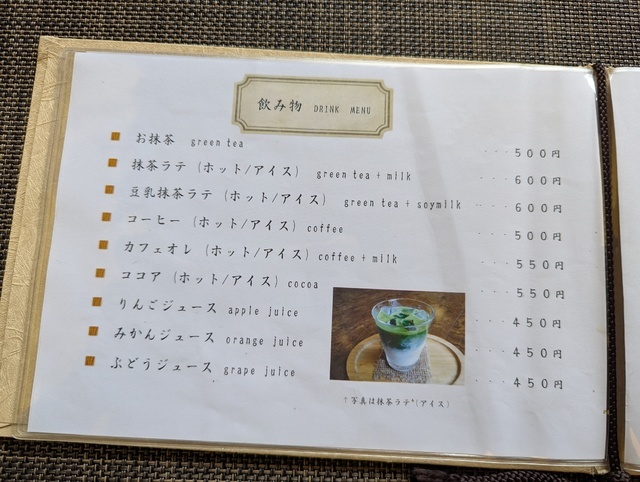 飲み物 DRINK MENU
お抹茶 green tea ････500円
抹茶ラテ (ホット/アイス) green tea + milk ････600円
豆乳抹茶ラテ (ホット/アイス) green tea + soymilk ････600円
コーヒー (ホット/アイス) coffee ････500円
カフェオレ (ホット/アイス) coffee + milk ････550円
ココア (ホット/アイス) cocoa ････550円
りんごジュース apple juice ････450円
みかんジュース orange juice ････450円
ぶどうジュース grape juice ････450円
↑写真は抹茶ラテ(アイス)